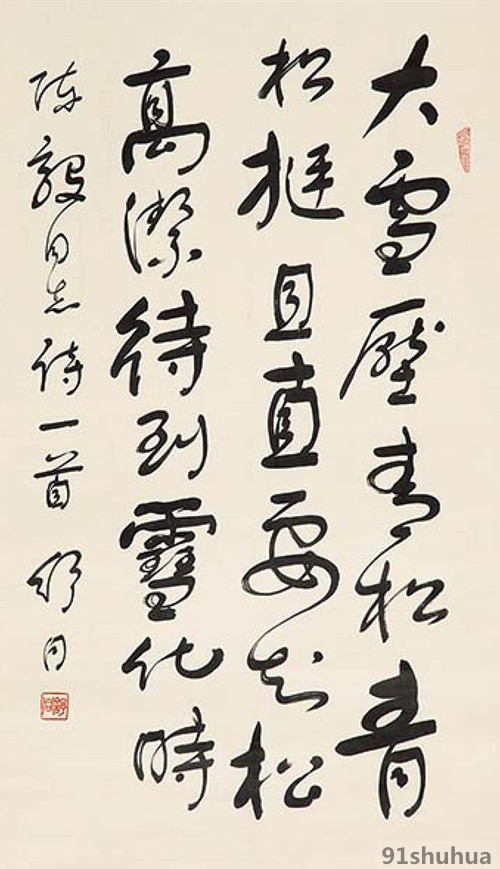 大雪壓青松青
松挺且直要知松
高潔待到雪化時
陈毅同志诗一首 舒同
91shuhua